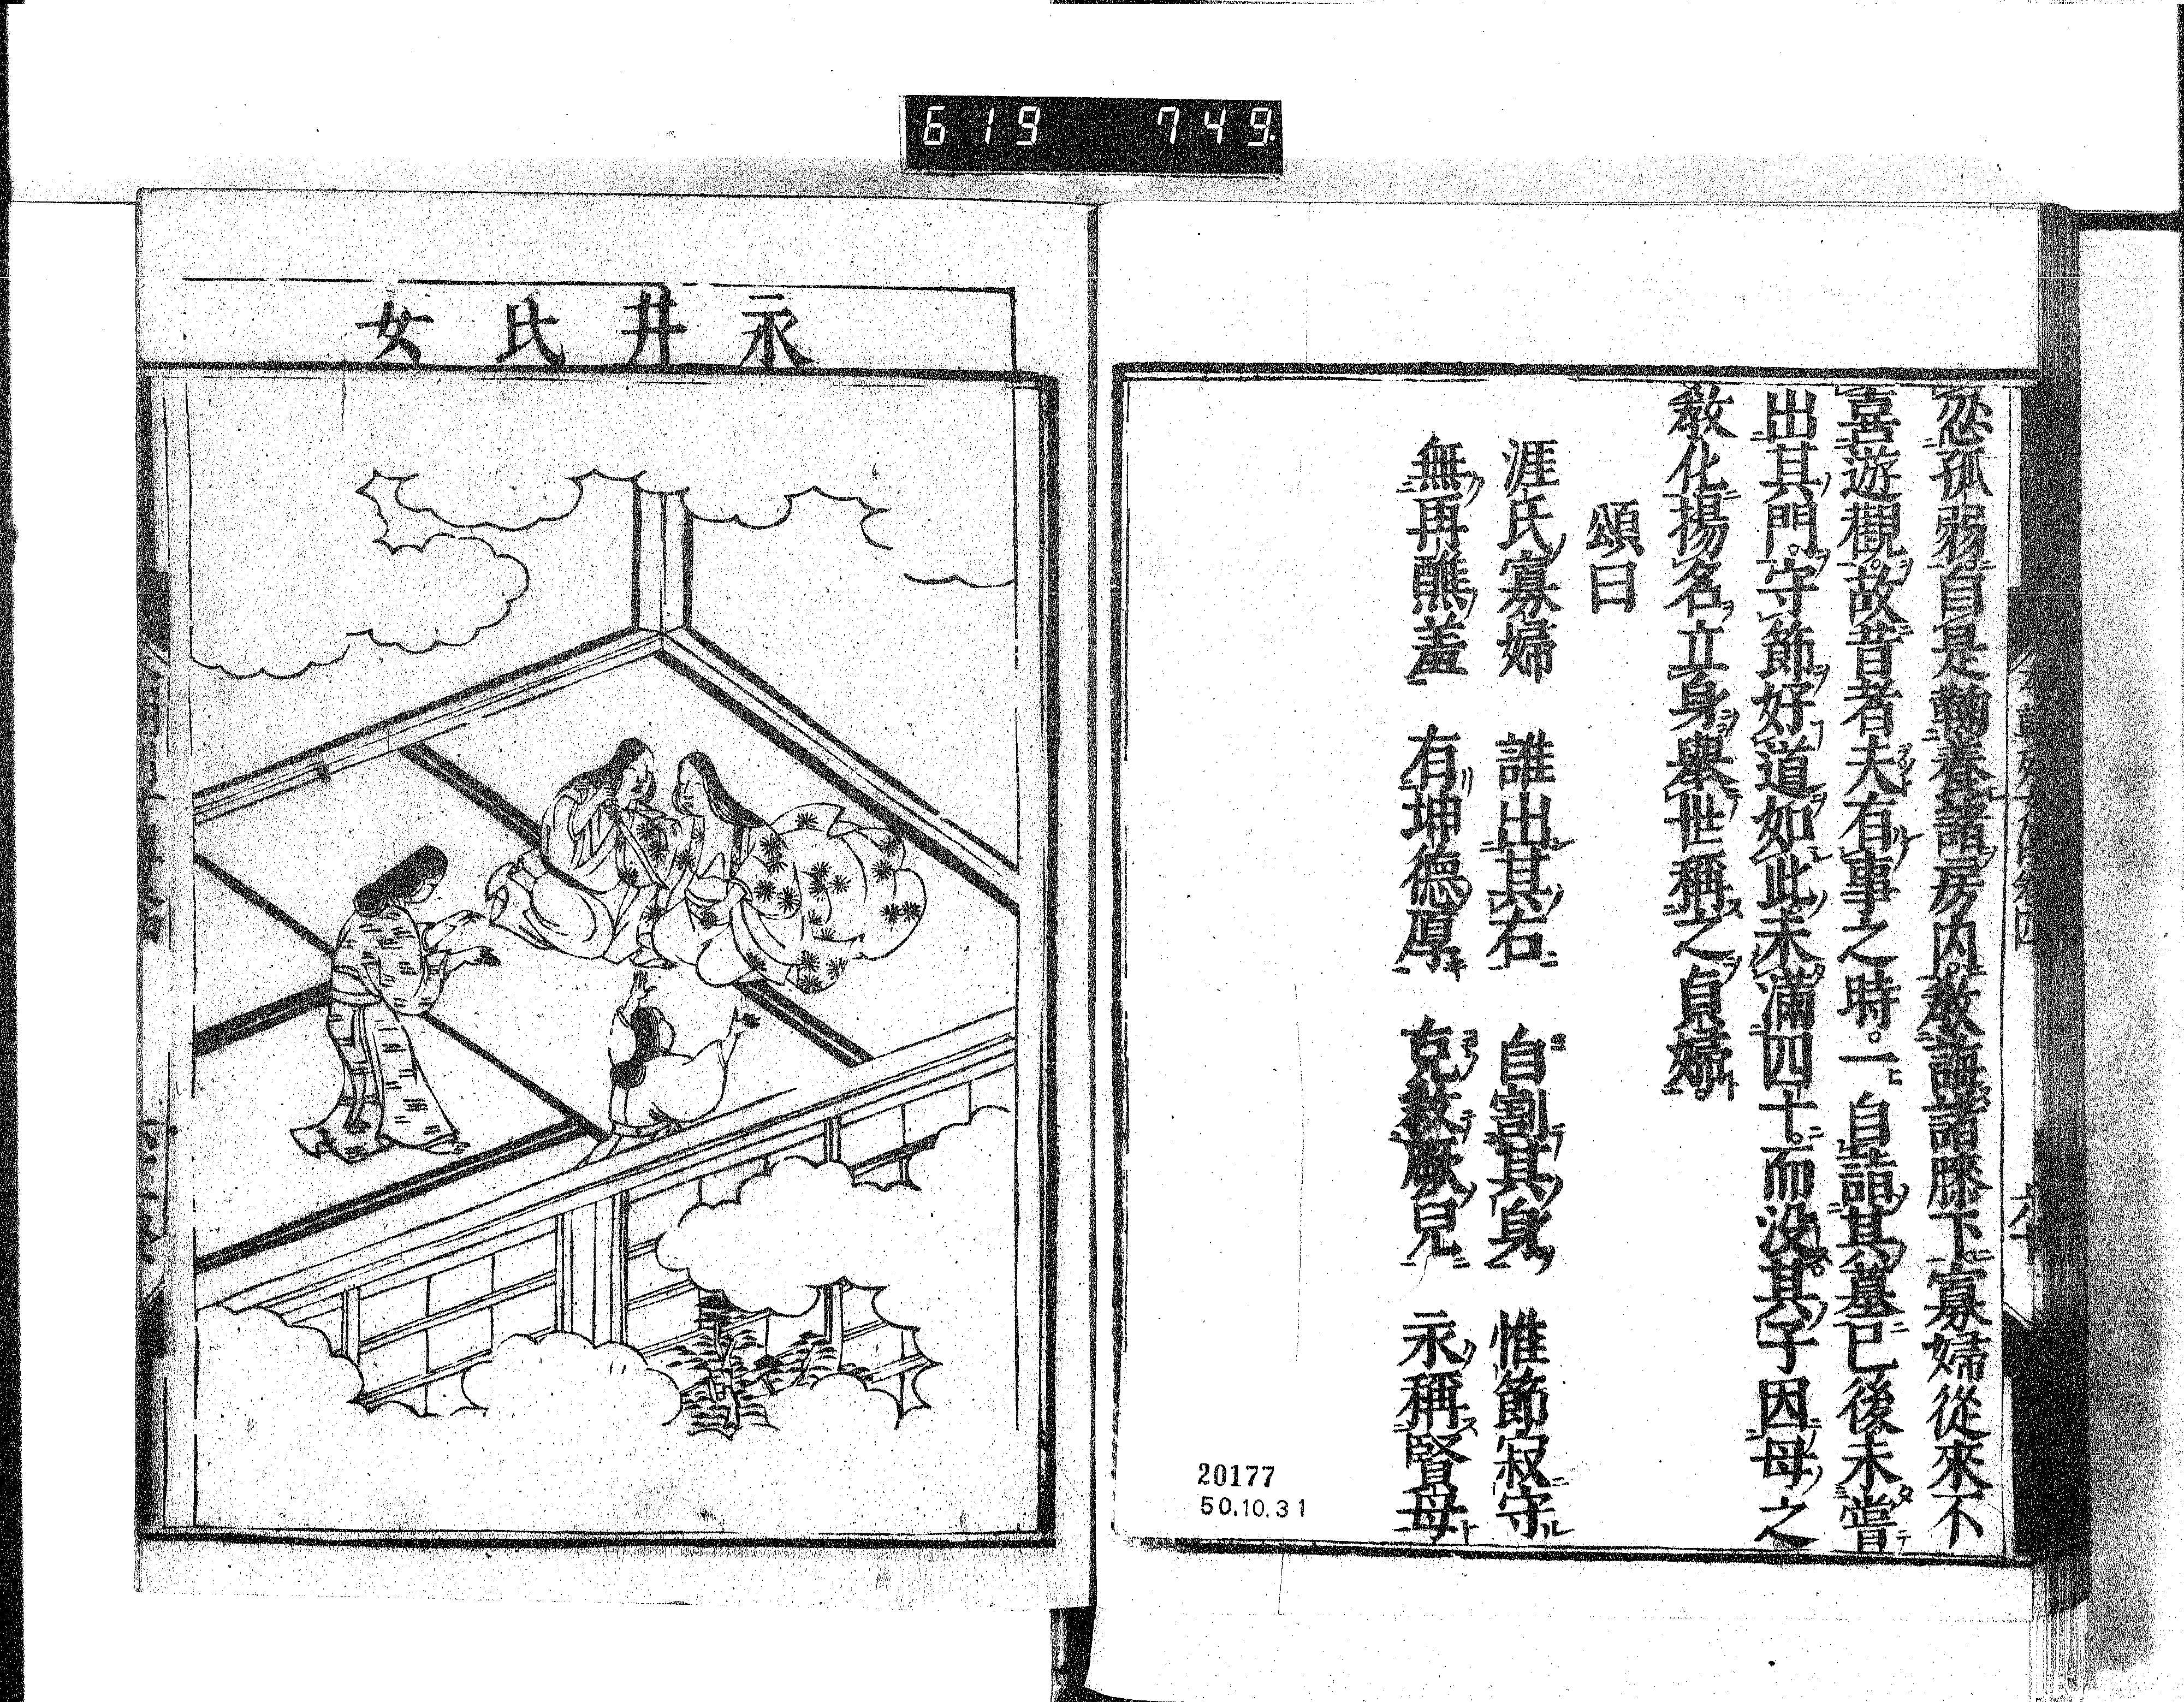 619 749.
忍孤弱自是鞠養諸房内教誨諸膝下寡婦從來不
喜遊觀故昔者夫有事之時。一自詣其墓已後未嘗
出其門。守節好道如此未滿四十。而没其子因母之
教化揚名立身擧世稱之貞婦
頌曰
涯氏寡婦 誰出其右 自割其身 惟節寂守
無再醮羞 有坤德厚 克教厥兒 永稱賢母
20177
50.10.31
永井氏女